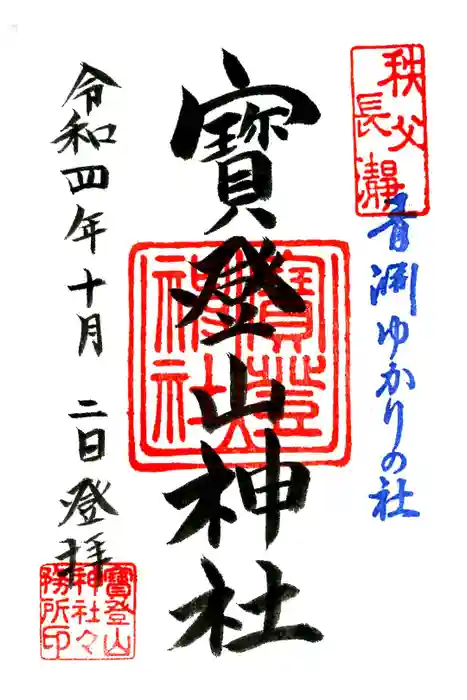 秩父
長瀞
青淵ゆかりの社
寳登山神社
寳登山
神社
令和四年十月二日登拝
寳登山
神社々
務所印